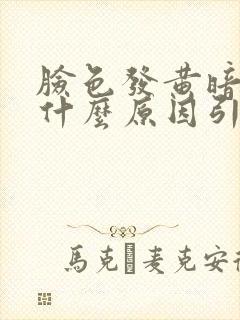 臉色發黃暗
什麼原因引
馬克 麥克安